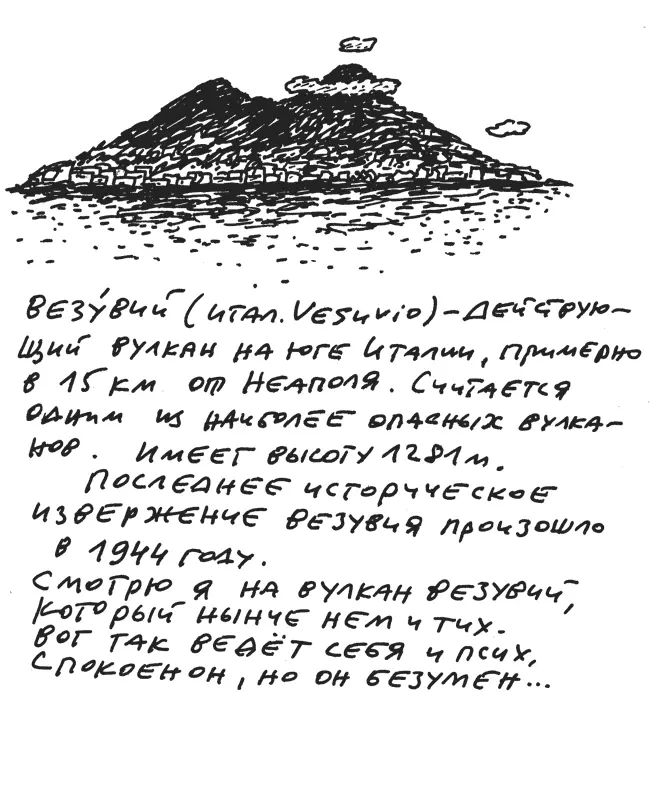 ВЕЗУ́ВИЙ (ИТАЛ. VESUVIO) – ДЕЙСТВУЮ-
ЩИЙ ВУЛКАН НА ЮГЕ ИТАЛИИ, ПРИМЕРНО
В 15 КМ ОТ НЕАПОЛЯ. СЧИТАЕТСЯ
ОДНИМ ИЗ НАИБОЛЕЕ ОПАСНЫХ ВУЛКА-
НОВ. ИМЕЕТ ВЫСОТУ 1281 М.
ПОСЛЕДНЕЕ ИСТОРИЧЕСКОЕ
ИЗВЕРЖЕНИЕ ВЕЗУВИЯ ПРОИЗОШЛО
В 1944 ГОДУ.
СМОТРЮ Я НА ВУЛКАН ВЕЗУВИЙ,
КОТОРЫЙ НЫНЧЕ НЕМ И ТИХ.
ВОТ ТАК ВЕДЁТ СЕБЯ И ПСИХ,
СПОКОЕН ОН, НО ОН БЕЗУМЕН...